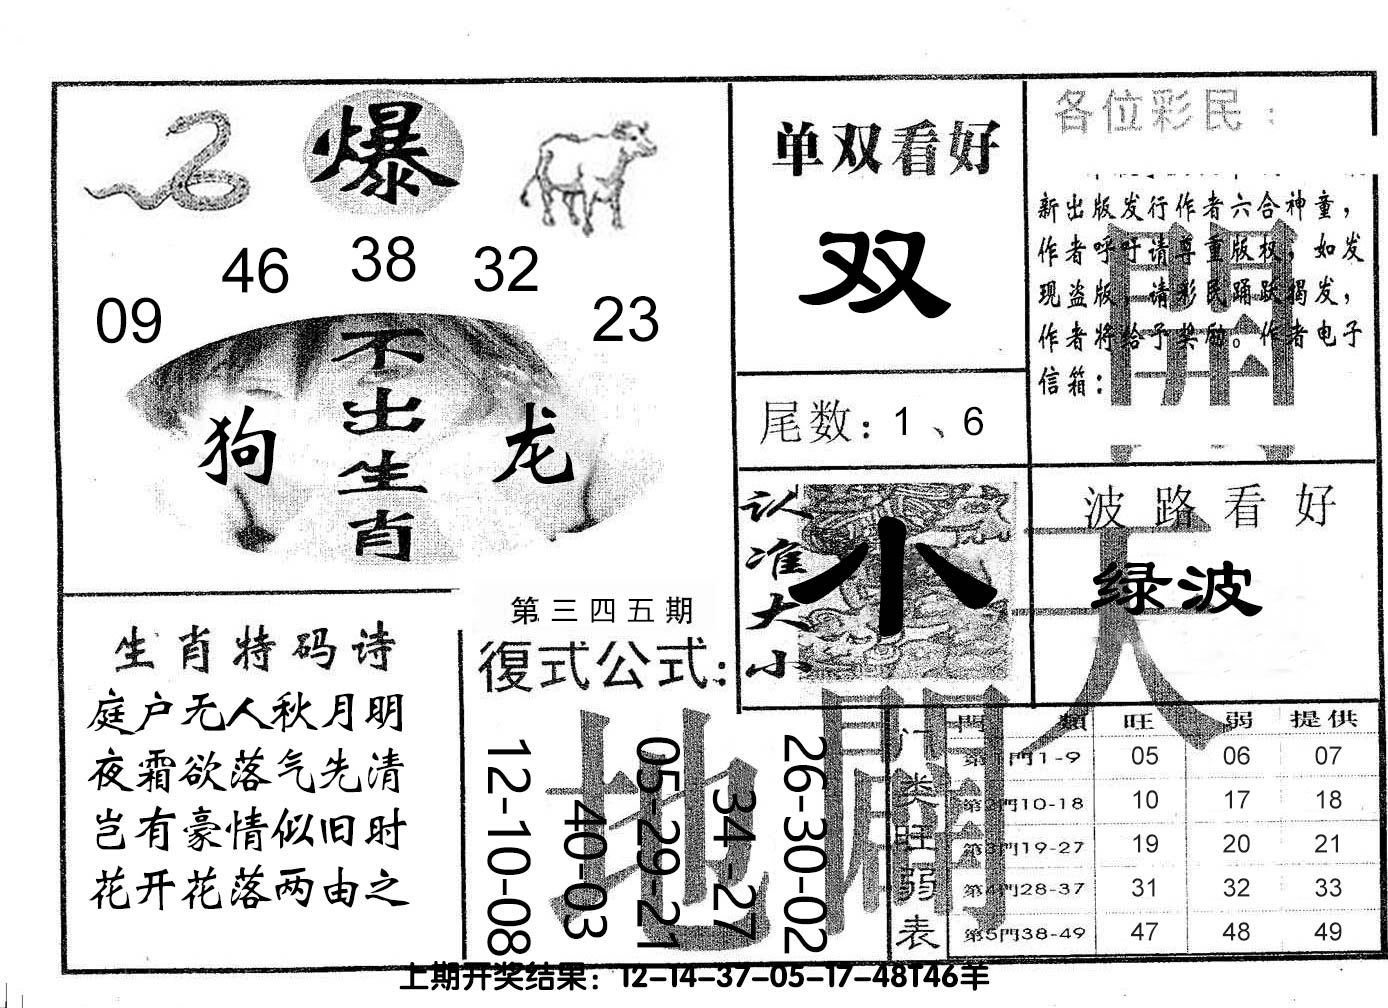 爆
46 38 32
09 23
不出生肖
狗 龙
单双看好
双
尾数：1、6
各位彩民：
新出版发行作者六合神童，
作者呼吁请尊重版权，如发
现盗版，请彩民踊跃揭发，
作者将给予奖励。作者电子
信箱：
認准大小
小
波路看好
绿波
天
開
地
闢
生肖特码诗
庭户无人秋月明
夜霜欲落气先清
岂有豪情似旧时
花开花落两由之
第三四五期
復式公式：
12-10-08
40-03
05-29-21
34-27
26-30-02
门类旺弱表
門類 旺 弱 提供
第1門1-9 05 06 07
第2門10-18 10 17 18
第3門19-27 19 20 21
第4門28-37 31 32 33
第5門38-49 47 48 49
上期开奖结果：12-14-37-05-17-48T46羊